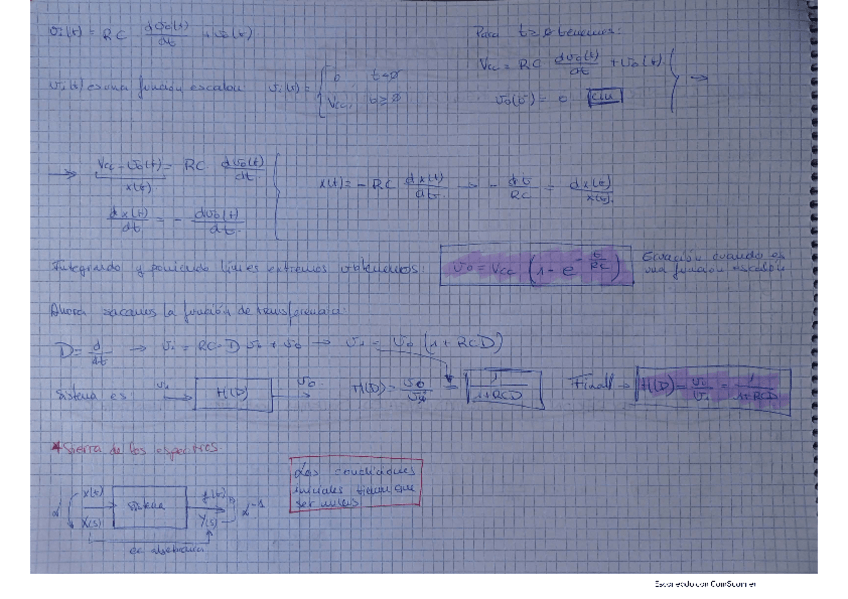 vi(t) = RC dvo(t)/dt + vo(t)
Para t ≥ 0 tenemos:
Vcc = RC dvo(t)/dt + vo(t)
vi(t) es una función escalón vi(t) = { 0 t<0
Vcc, t ≥ 0
→ Vcc - vo(t) = RC dvo(t)/dt
x(t)
x(t) = - RC dx(t)/dt → - dt/RC = dx(t)/x(t)
dx(t)/dt = - dvo(t)/dt
Integrando y poniendo límites extremos obtenemos: vo = Vcc (1 - e^(-t/RC)) Ecuación cuando es
una función escalón
Ahora sacamos la función de transferencia:
D = d/dt → vi = RC·D vo + vo → vi = vo (1 + RCD)
Sistema es: vi → H(D) → vo H(D) = vo/vi = 1/1+RCD Final → H(D) = vo/vi = 1/1+RCD
*Sierra de los espectros.
Las condiciones
iniciales tienen que
ser nulas
x(t) sistema y(t)
X(s) Y(s)
Escaneado con CamScanner